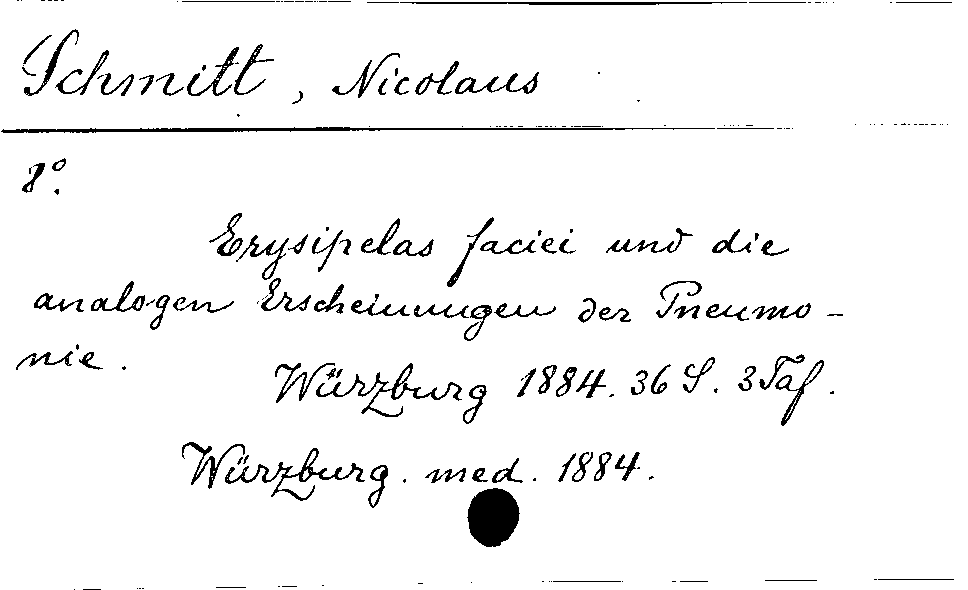 Schmitt, Nicolaus
8°.
Erysipelas faciei und die
analogen Erscheinungen der Pneumo-
nie.
Würzburg 1884. 36 S. 3 Taf.
Würzburg. med. 1884.